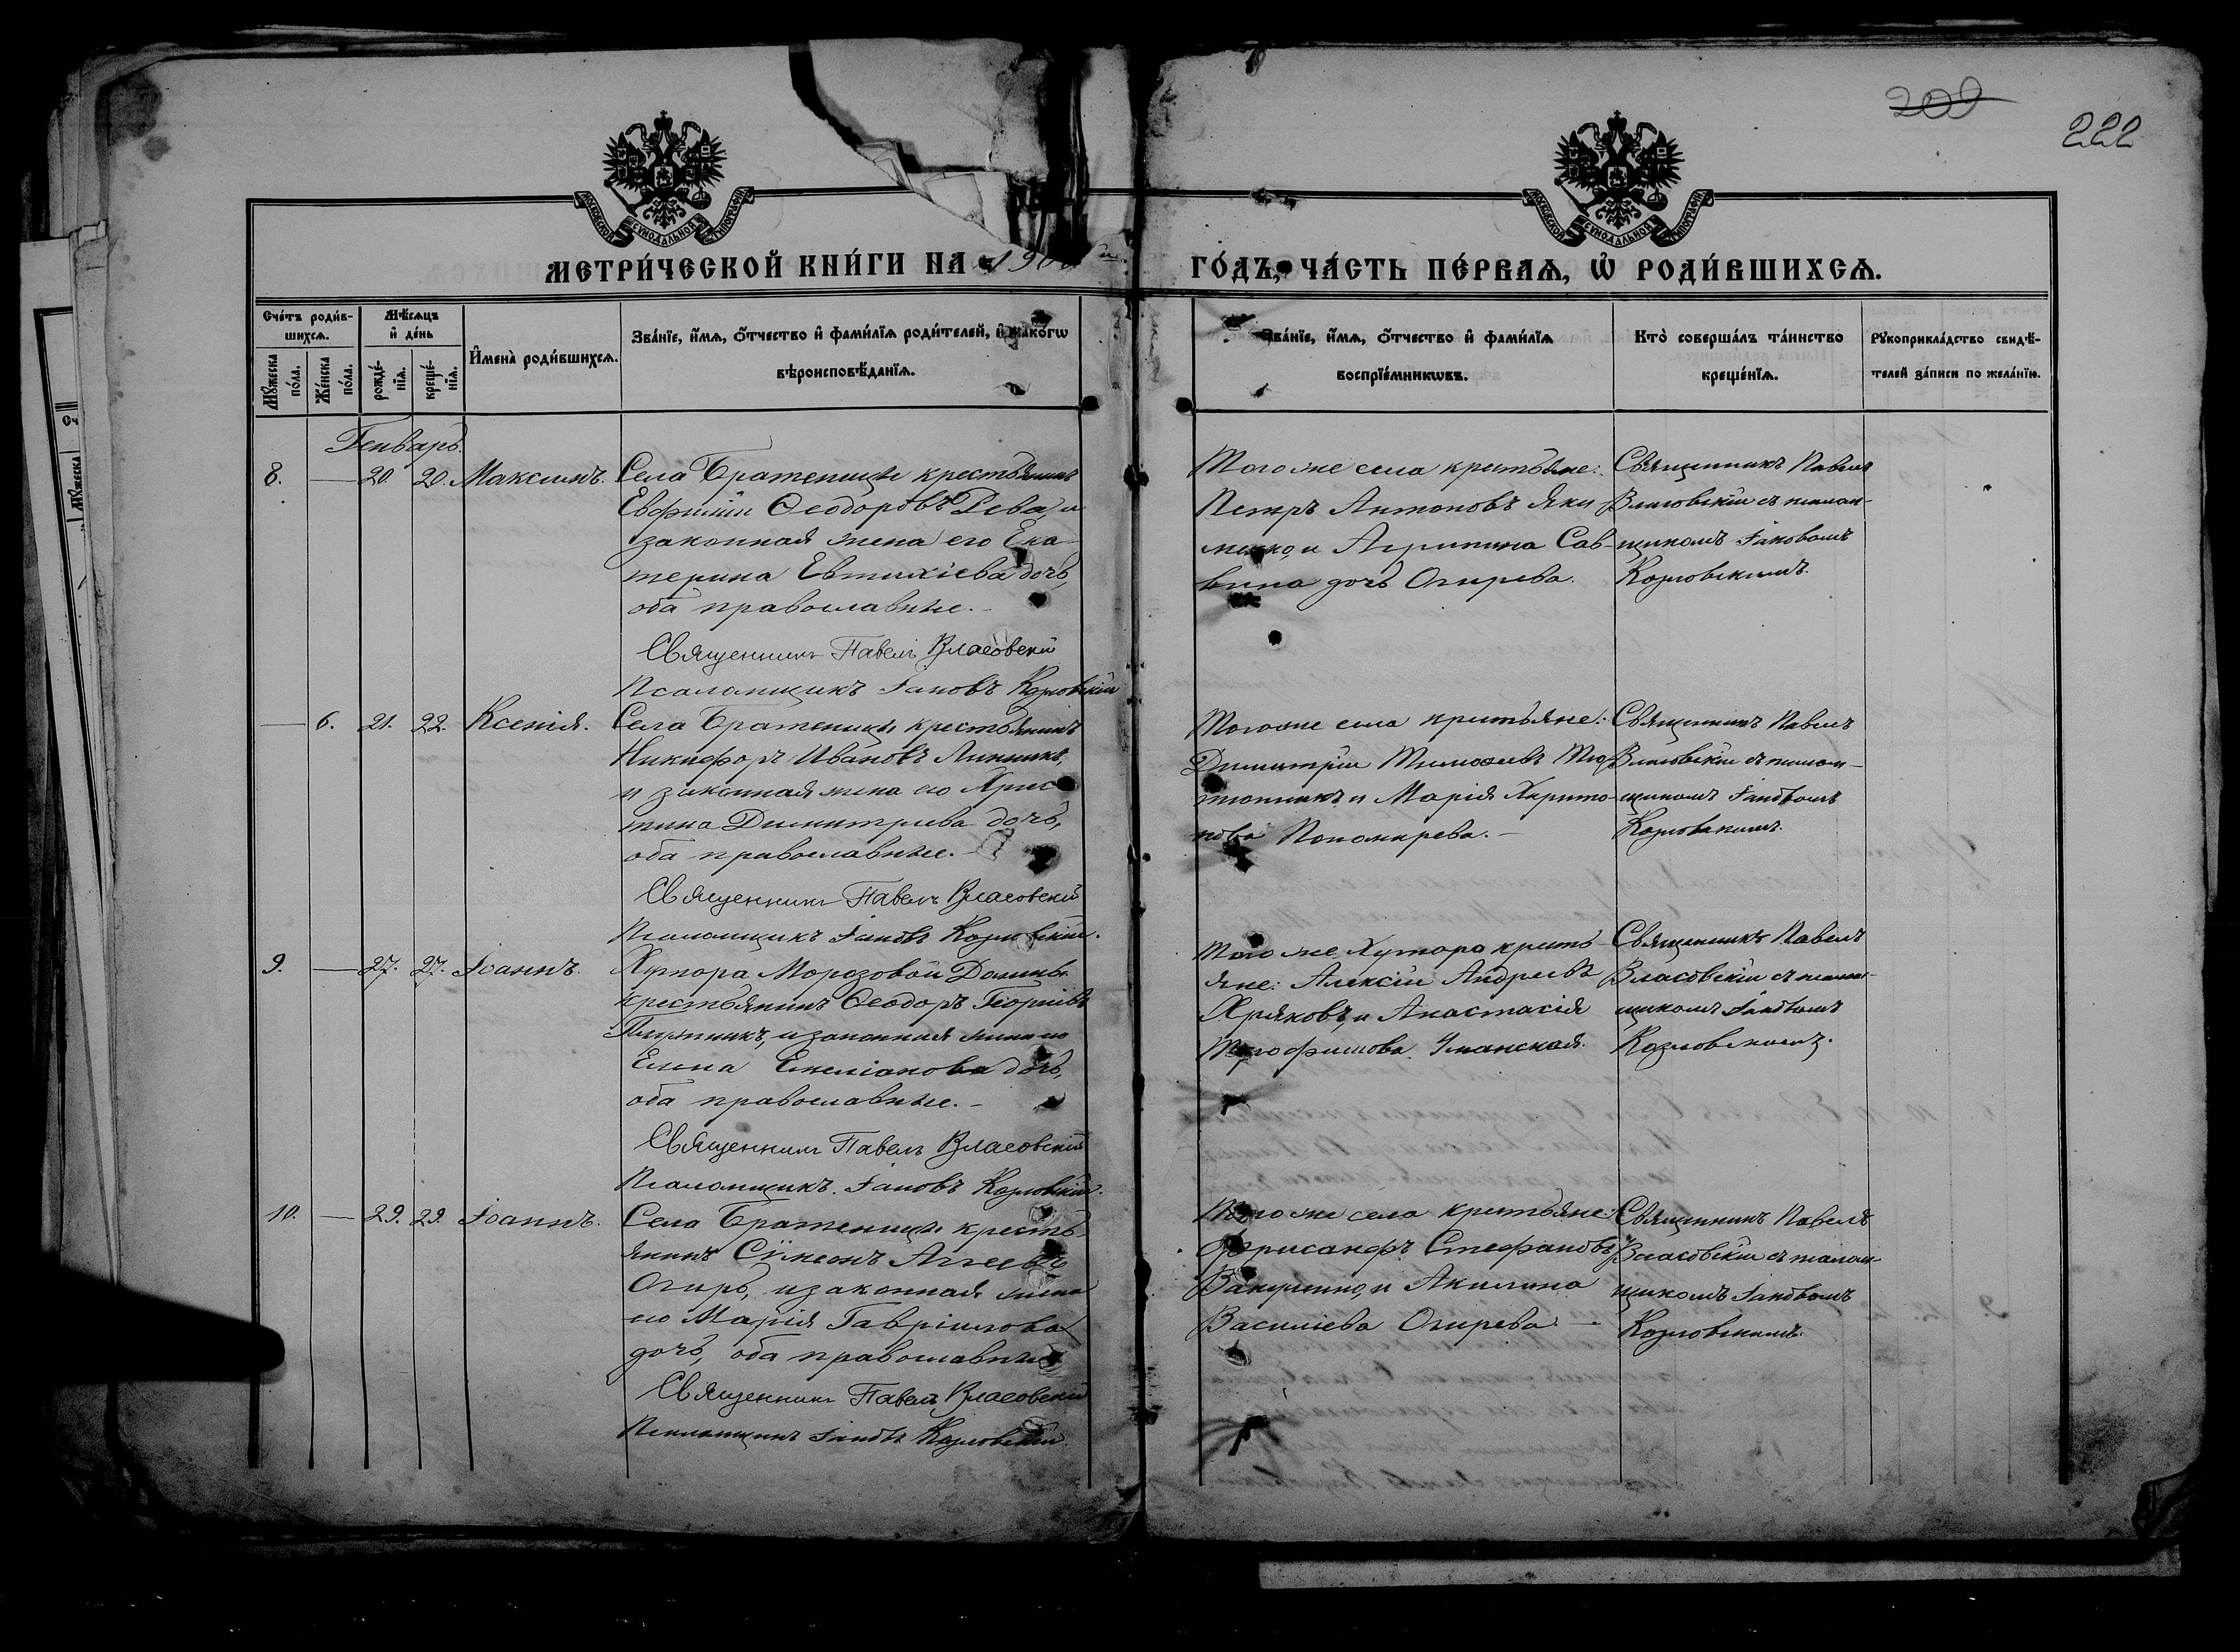 209
222
МОСКОВСКОЙ СѴНОДАЛЬНОЙ ТИПОГРАФІИ
МОСКОВСКОЙ СѴНОДАЛЬНОЙ ТИПОГРАФІИ
МЕТРИ́ЧЕСКОЙ КНИ́ГИ НА
ГО́ДЪ, ЧА́СТЬ ПЕ́РВАѦ, Ѡ҆ РОДИ́ВШИХСѦ.
Сче́тъ роди́в-
шихсѧ.
Мꙋ́жеска по́ла.
Же́нска по́ла.
Мѣ́сѧцъ
и҆ де́нь
рожде́-
нїѧ.
креще́-
нїѧ.
И҆мена̀ роди́вшихсѧ.
Зва́нїе, и҆́мѧ, ѻ҆́тчество и҆ фами́лїѧ роди́телей, и҆ какѡ́гѡ
вѣроисповѣ́данїѧ.
Зва́нїе, и҆́мѧ, ѻ҆́тчество и҆ фами́лїѧ
воспрїе́мникѡвъ.
Кто̀ соверша́лъ та́инство
креще́нїѧ.
Рꙋкоприкла́дство свидѣ́-
телей за́писи по жела́нїю.
Генварь.
8. — 20. 20. Максимъ.
Села Братеницы крестьянинъ
Евфимій Ѳеодоровъ Рева, и
законная жена его Ека-
терина Евтихіева дочь,
оба православные. -
Священникъ Павелъ Власовскій
Псаломщикъ Іаковъ Козловскій
Того же села крестьяне:
Петръ Антоновъ Яки-
менко, и Агрипина Сав-
вина дочь Огирева.
Священникъ Павелъ
Власовскій съ псалом-
щикомъ Іаковомъ
Козловскимъ.
— 6. 21. 22. Ксенія.
Села Братеницы крестьянинъ
Никифоръ Ивановъ Линникъ,
и законная жена его Хрис-
тина Димитріева дочь,
оба православные. -
Священникъ Павелъ Власовскій
Псаломщикъ Іаковъ Козловскій.
Того же села крестьяне:
Димитрій Тимоѳеевъ Тю-
тюнникъ, и Марія Харито-
нова Пономарева. -
Священникъ Павелъ
Власовскій съ псалом-
щикомъ Іаковомъ
Козловскимъ.
9. — 27. 27. Іоаннъ.
Хутора Морозовой Долины
крестьянинъ Ѳеодоръ Георгіевъ
и законная жена его
Елена Емеліанова дочь,
оба православные. -
Священникъ Павелъ Власовскій
Псаломщикъ Іаковъ Козловскій.
Того же Хутора кресть-
яне: Алексій Андреевъ
Хряковъ, и Анастасія
Трофимова Уманская.
Священникъ Павелъ
Власовскій съ псалом-
щикомъ Іаковомъ
Козловскимъ.
10. — 29. 29. Іоаннъ.
Села Братеницы кресть-
янинъ Сѵмеонъ Агеевъ
Огирь, и законная жена
его Марія Гавріилова
дочь, оба православные.
Священникъ Павелъ Власовскій
Псаломщикъ Іаковъ Козловскій.
Того же села крестьяне:
Хрисанфъ Стефановъ
Вакуленко, и Акилина
Василіева Огирева. -
Священникъ Павелъ
Власовскій съ псалом-
щикомъ Іаковомъ
Козловскимъ.